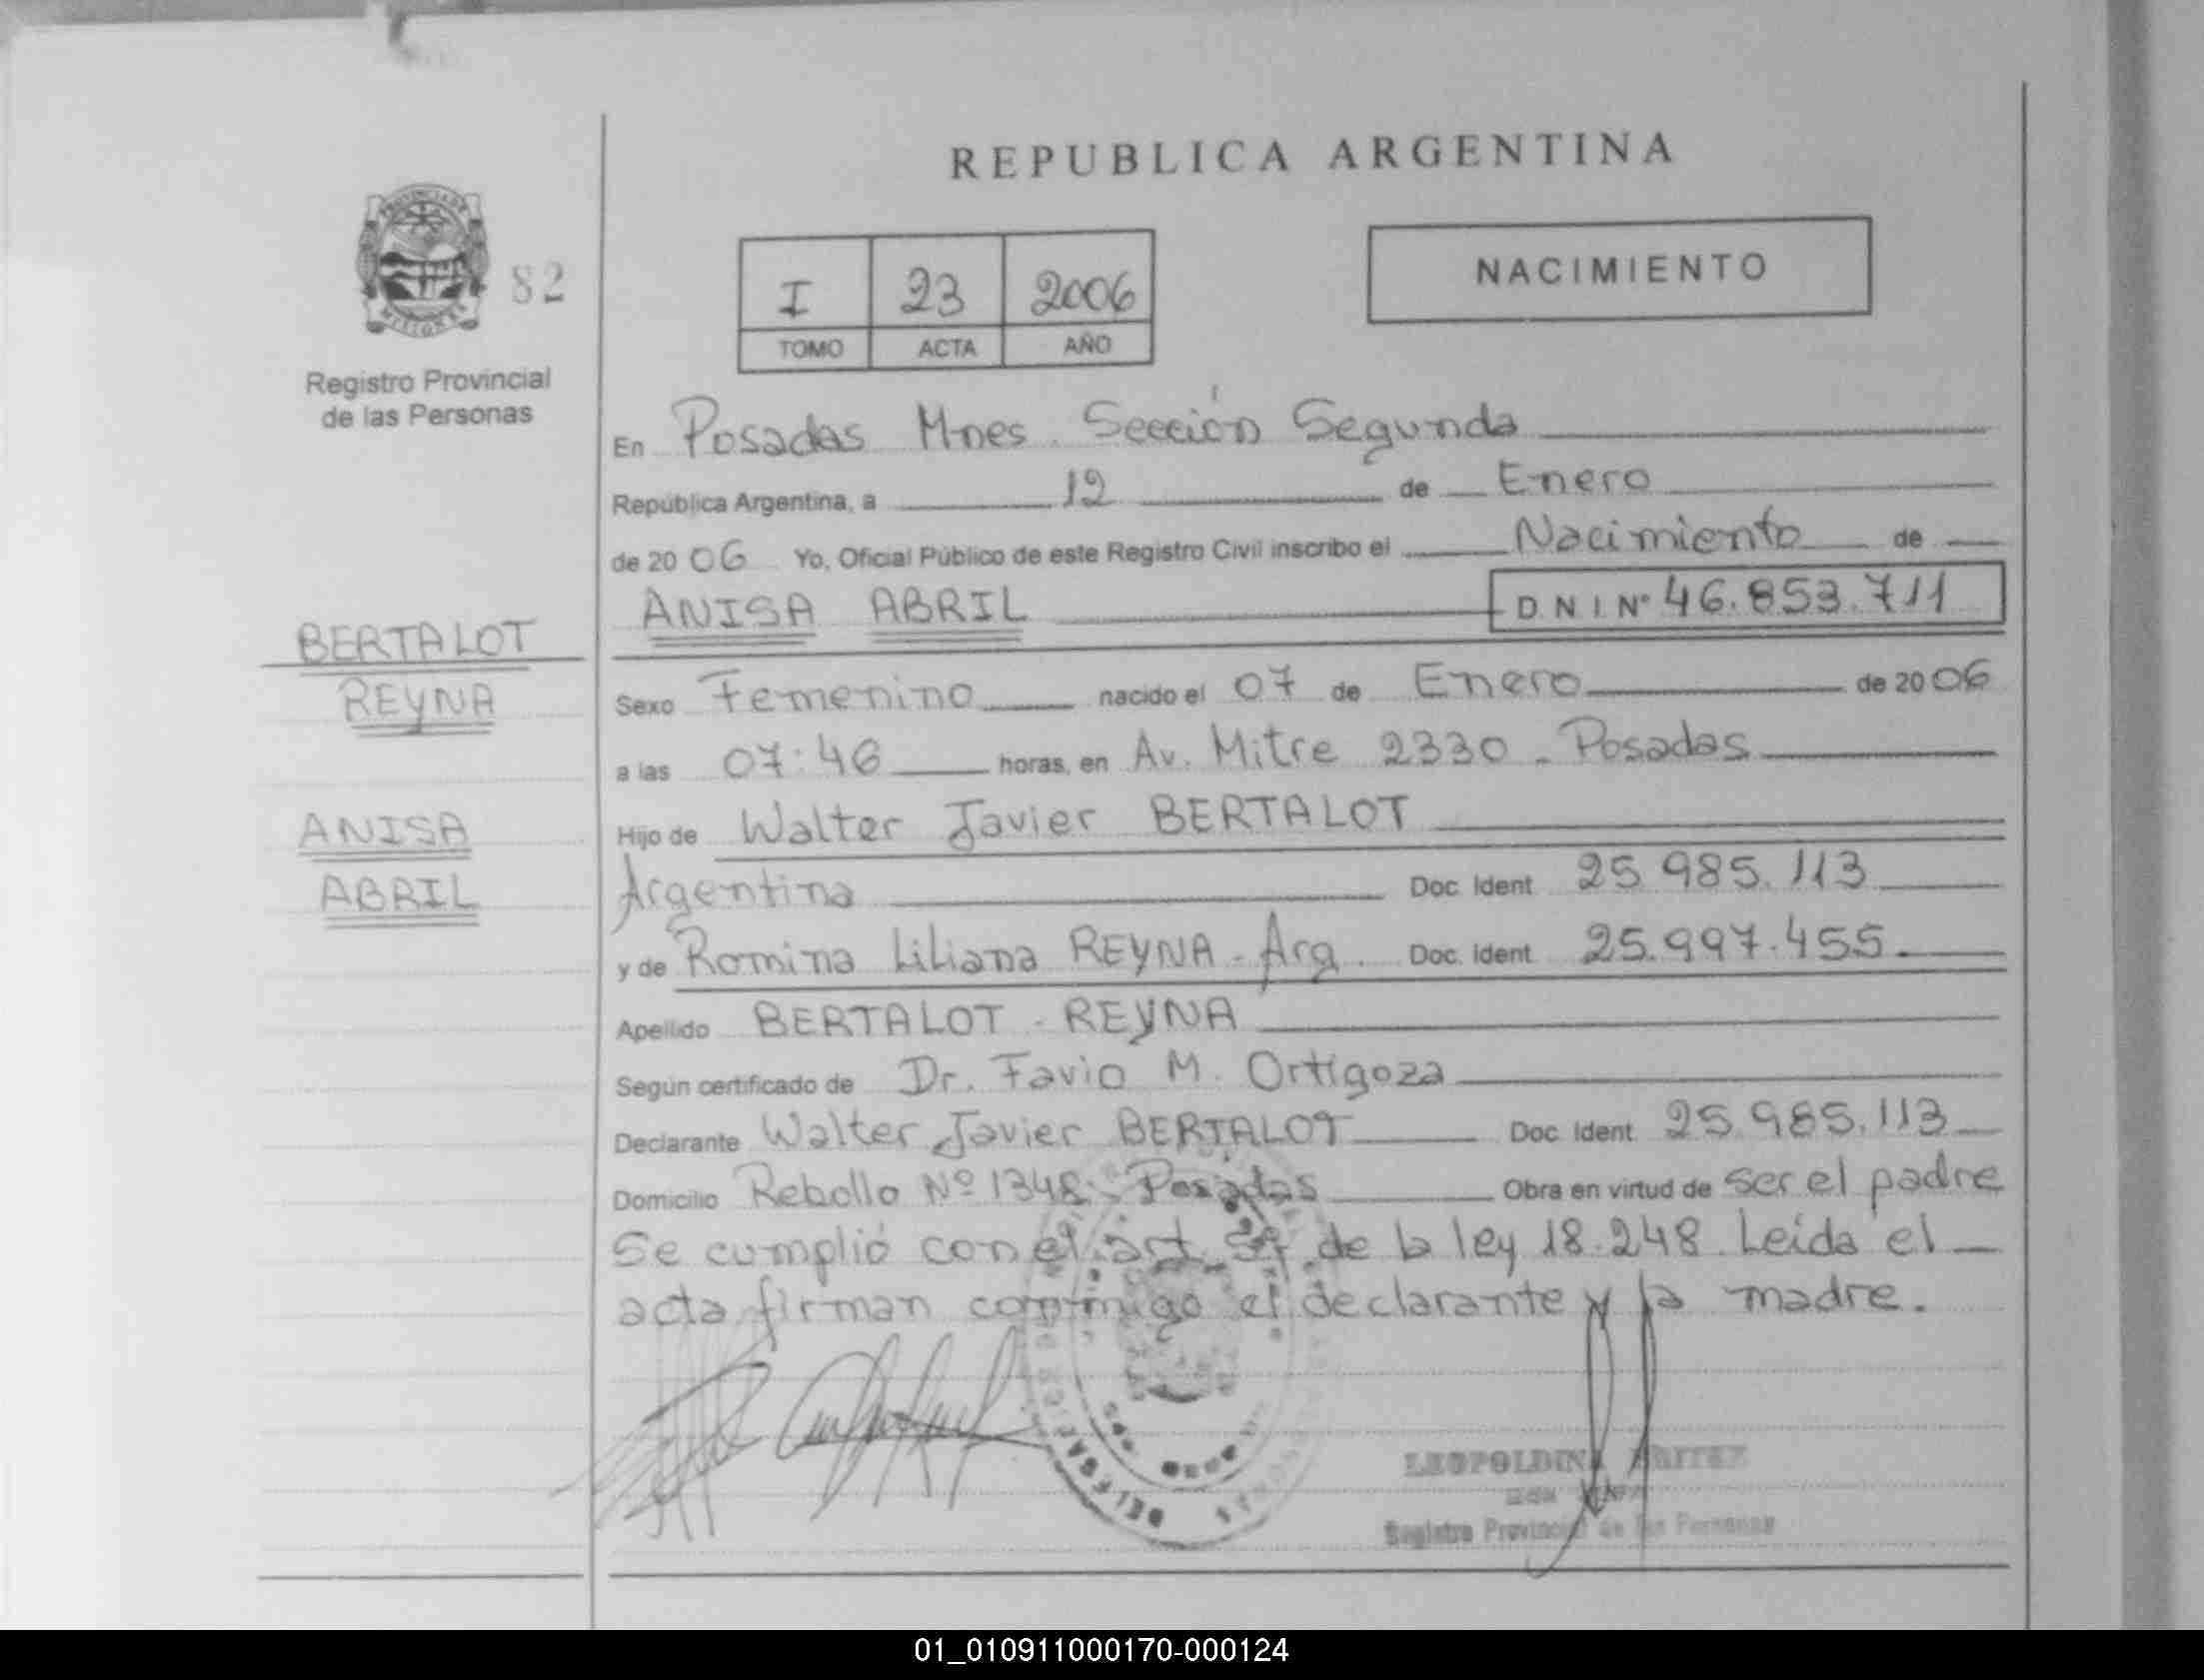 REPUBLICA ARGENTINA
NACIMIENTO
I 23 2006
TOMO ACTA AÑO
PROVINCIA DE
MISIONES
82
Registro Provincial
de las Personas
En Posadas Mnes. Sección Segunda
República Argentina, a 12 de Enero
de 2006 Yo, Oficial Público de este Registro Civil inscribo el Nacimiento de
ANISA ABRIL D.N.I. Nº 46.853.711
BERTALOT
REYNA
ANISA
ABRIL
Sexo Femenino nacido el 07 de Enero de 2006
a las 07:46 horas, en Av. Mitre 2330 - Posadas
Hijo de Walter Javier BERTALOT
Argentina Doc. Ident 25.985.113
y de Romina Liliana REYNA - Arg. Doc. Ident 25.997.455.
Apellido BERTALOT - REYNA
Según certificado de Dr. Favio M. Ortigoza
Declarante Walter Javier BERTALOT Doc Ident 25.985.113
Domicilio Rebollo Nº 1348. Posadas Obra en virtud de ser el padre
Se cumplió con el art. de la ley 18.248. Leída el
acta firman conmigo el declarante y la madre.
LEOPOLDINA BRITEZ
Registro Provincial de las Personas
01_010911000170-000124